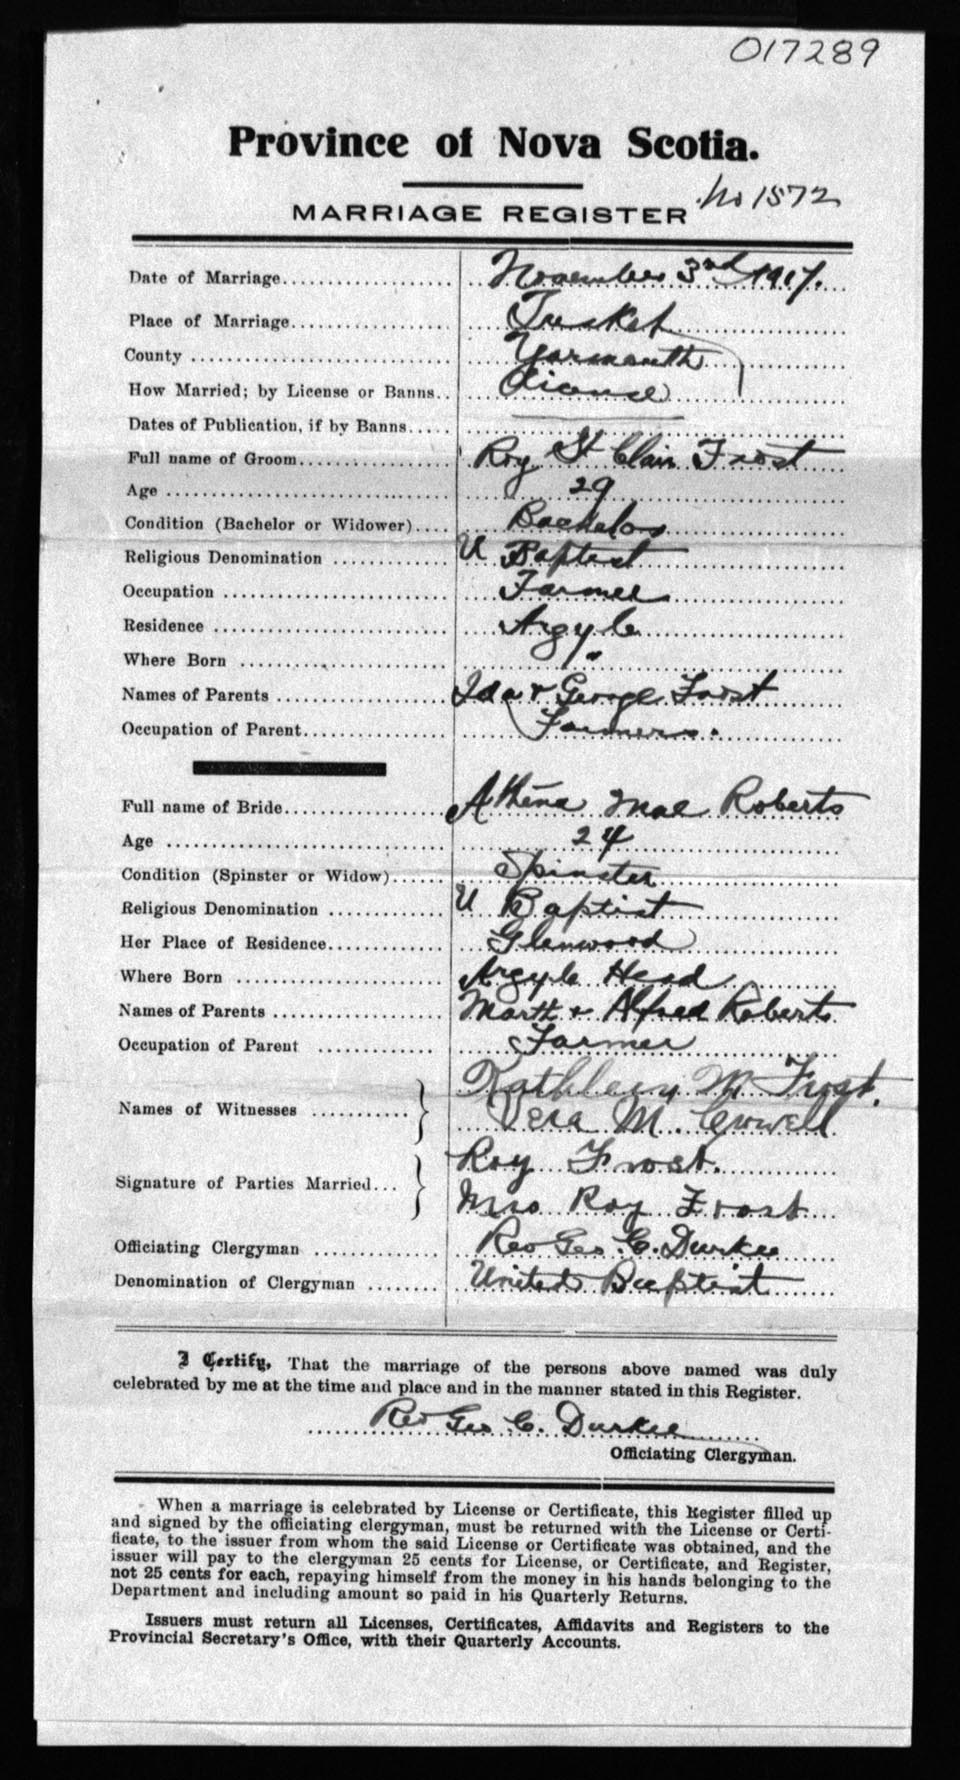 017289
Province of Nova Scotia.
No 1572
MARRIAGE REGISTER
Date of Marriage.................. November 3rd 1917.
Place of Marriage.................. Tusket
County .................. Yarmouth
How Married; by License or Banns.. License
Dates of Publication, if by Banns.....
Full name of Groom.................. Roy St Clair Frost
Age .................. 29
Condition (Bachelor or Widower).... Bachelor
Religious Denomination ............ U Baptist
Occupation .................. Farmer
Residence .................. Argyle
Where Born .................. "
Names of Parents .................. Ida & George Frost
Occupation of Parent.................. Farmers.
Full name of Bride.................. Athena Mae Roberts
Age .................. 24
Condition (Spinster or Widow)...... Spinster
Religious Denomination ............ U Baptist
Her Place of Residence............ Glenwood
Where Born .................. Argyle Head
Names of Parents .................. Marth & Alfred Roberts
Occupation of Parent ............ Farmer
Kathleen M Frost.
Names of Witnesses ...........
Vera M. Crowell
Roy Frost.
Signature of Parties Married...
Mrs Roy Frost
Officiating Clergyman ............ Rev Geo. C. Durkee
Denomination of Clergyman ........ United Baptist
I Certify, That the marriage of the persons above named was duly
celebrated by me at the time and place and in the manner stated in this Register.
Rev Geo C. Durkee
Officiating Clergyman.
When a marriage is celebrated by License or Certificate, this Register filled up
and signed by the officiating clergyman, must be returned with the License or Certi-
ficate, to the issuer from whom the said License or Certificate was obtained, and the
issuer will pay to the clergyman 25 cents for License, or Certificate, and Register,
not 25 cents for each, repaying himself from the money in his hands belonging to the
Department and including amount so paid in his Quarterly Returns.
Issuers must return all Licenses, Certificates, Affidavits and Registers to the
Provincial Secretary's Office, with their Quarterly Accounts.